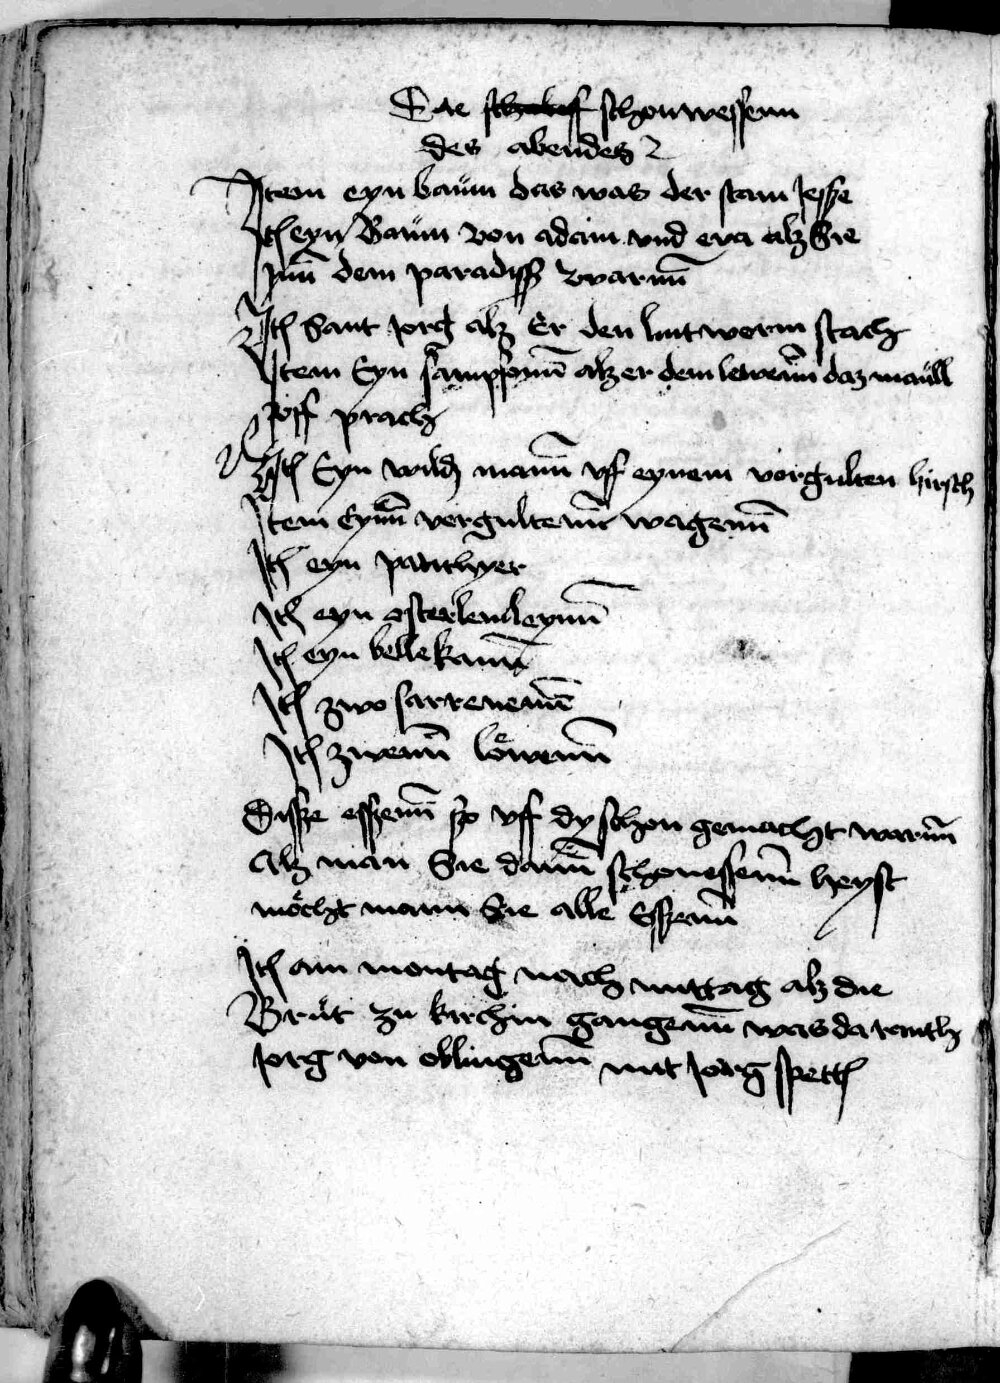 Die schonwessenn
des abendes
Item eyn baum das was der stam Jesse
Ith eyn Baum von adam vnd eva alz Sie
ynn dem paradiß warnn
Ith Sant Jorg alz Er den lintworm stach
Item Eyn sampsonn alz er dem lewenn daz maüll
vff prach
Ith Eyn wild mann vff eynem vorgulten hirsch
Item Eynn vergultenn wagenn
Ith eyn panthyer
Ith eyn osterlemleynn
Ith eyn bellekann
Ith zwo sarrenenn
Ith zwenn löwenn
Disze esszenn szo vff dy schon gemacht warnn
Alz man Sie dann schonessenn heyst
möcht mann Sie alle Esszenn
Ith am montag nach mittag alz die
Brüt zu kirchin gangenn was da ranth
Jorg von ohlingenn mit Jorg spetth